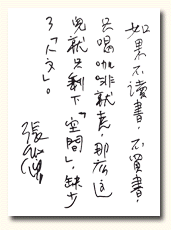 如果不讀書,不買書,
只喝咖啡就走,那麼這
兒就只剩下「空間」,缺少
了「人文」。